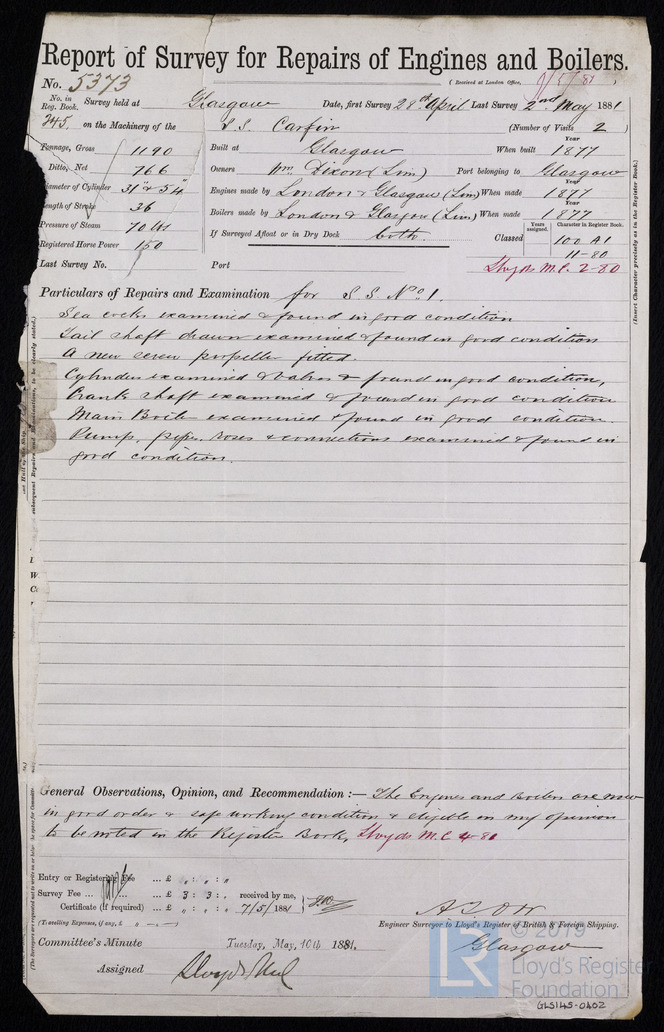 Report of Survey for Repairs of Engines and Boilers.
No. 5373 (Received at London Office, 9/5/81)
No. in Reg. Book. Survey held at Glasgow Date, first Survey 28th April Last Survey 2nd May 1881
245. on the Machinery of the S.S. Carfin (Number of Visits 2)
Tonnage, Gross 1190 Built at Glasgow When built Year 1877
Ditto, Net 766 Owners Wm Dixon (Lim) Port belonging to Glasgow
Diameter of Cylinder 31" & 54" Engines made by London & Glasgow (Lim) When made Year 1877
Length of Stroke 36 Boilers made by London & Glasgow (Lim) When made Year 1877
Pressure of Steam 70 lbs If Surveyed Afloat or in Dry Dock both. Classed Years assigned. Character in Register Book. 100 A1
Registered Horse Power 150 11-80
Last Survey No. Port Lloyds M.C. 2-80
(Insert Character precisely as in the Register Book.)
Particulars of Repairs and Examination for S S No 1.
Sea cocks examined & found in good condition
Tail shaft drawn examined & found in good condition
A new screw propeller fitted.
Cylinders examined & valves & found in good condition,
Crank shaft examined & found in good condition
Main Boiler examined & found in good condition.
Pumps, pipes, roses & connections examined & found in
good condition.
General Observations, Opinion, and Recommendation :— The Engines and Boilers are now
in good order & safe working condition & eligible in my opinion
to be noted in the Register Book, Lloyds M.C 4-81
Entry or Registered Fee ... £ : :
Survey Fee ... ... £ 3 : 3 : received by me,
Certificate (if required) ... £ : : 7/5/1881
(Travelling Expenses, if any, £ )
Engineer Surveyor to Lloyd's Register of British & Foreign Shipping.
Committee's Minute Tuesday, May, 10th 1881. Glasgow
Assigned Lloyds M.C
© 2019
LR Lloyd's Register
Foundation
GLS145-0402